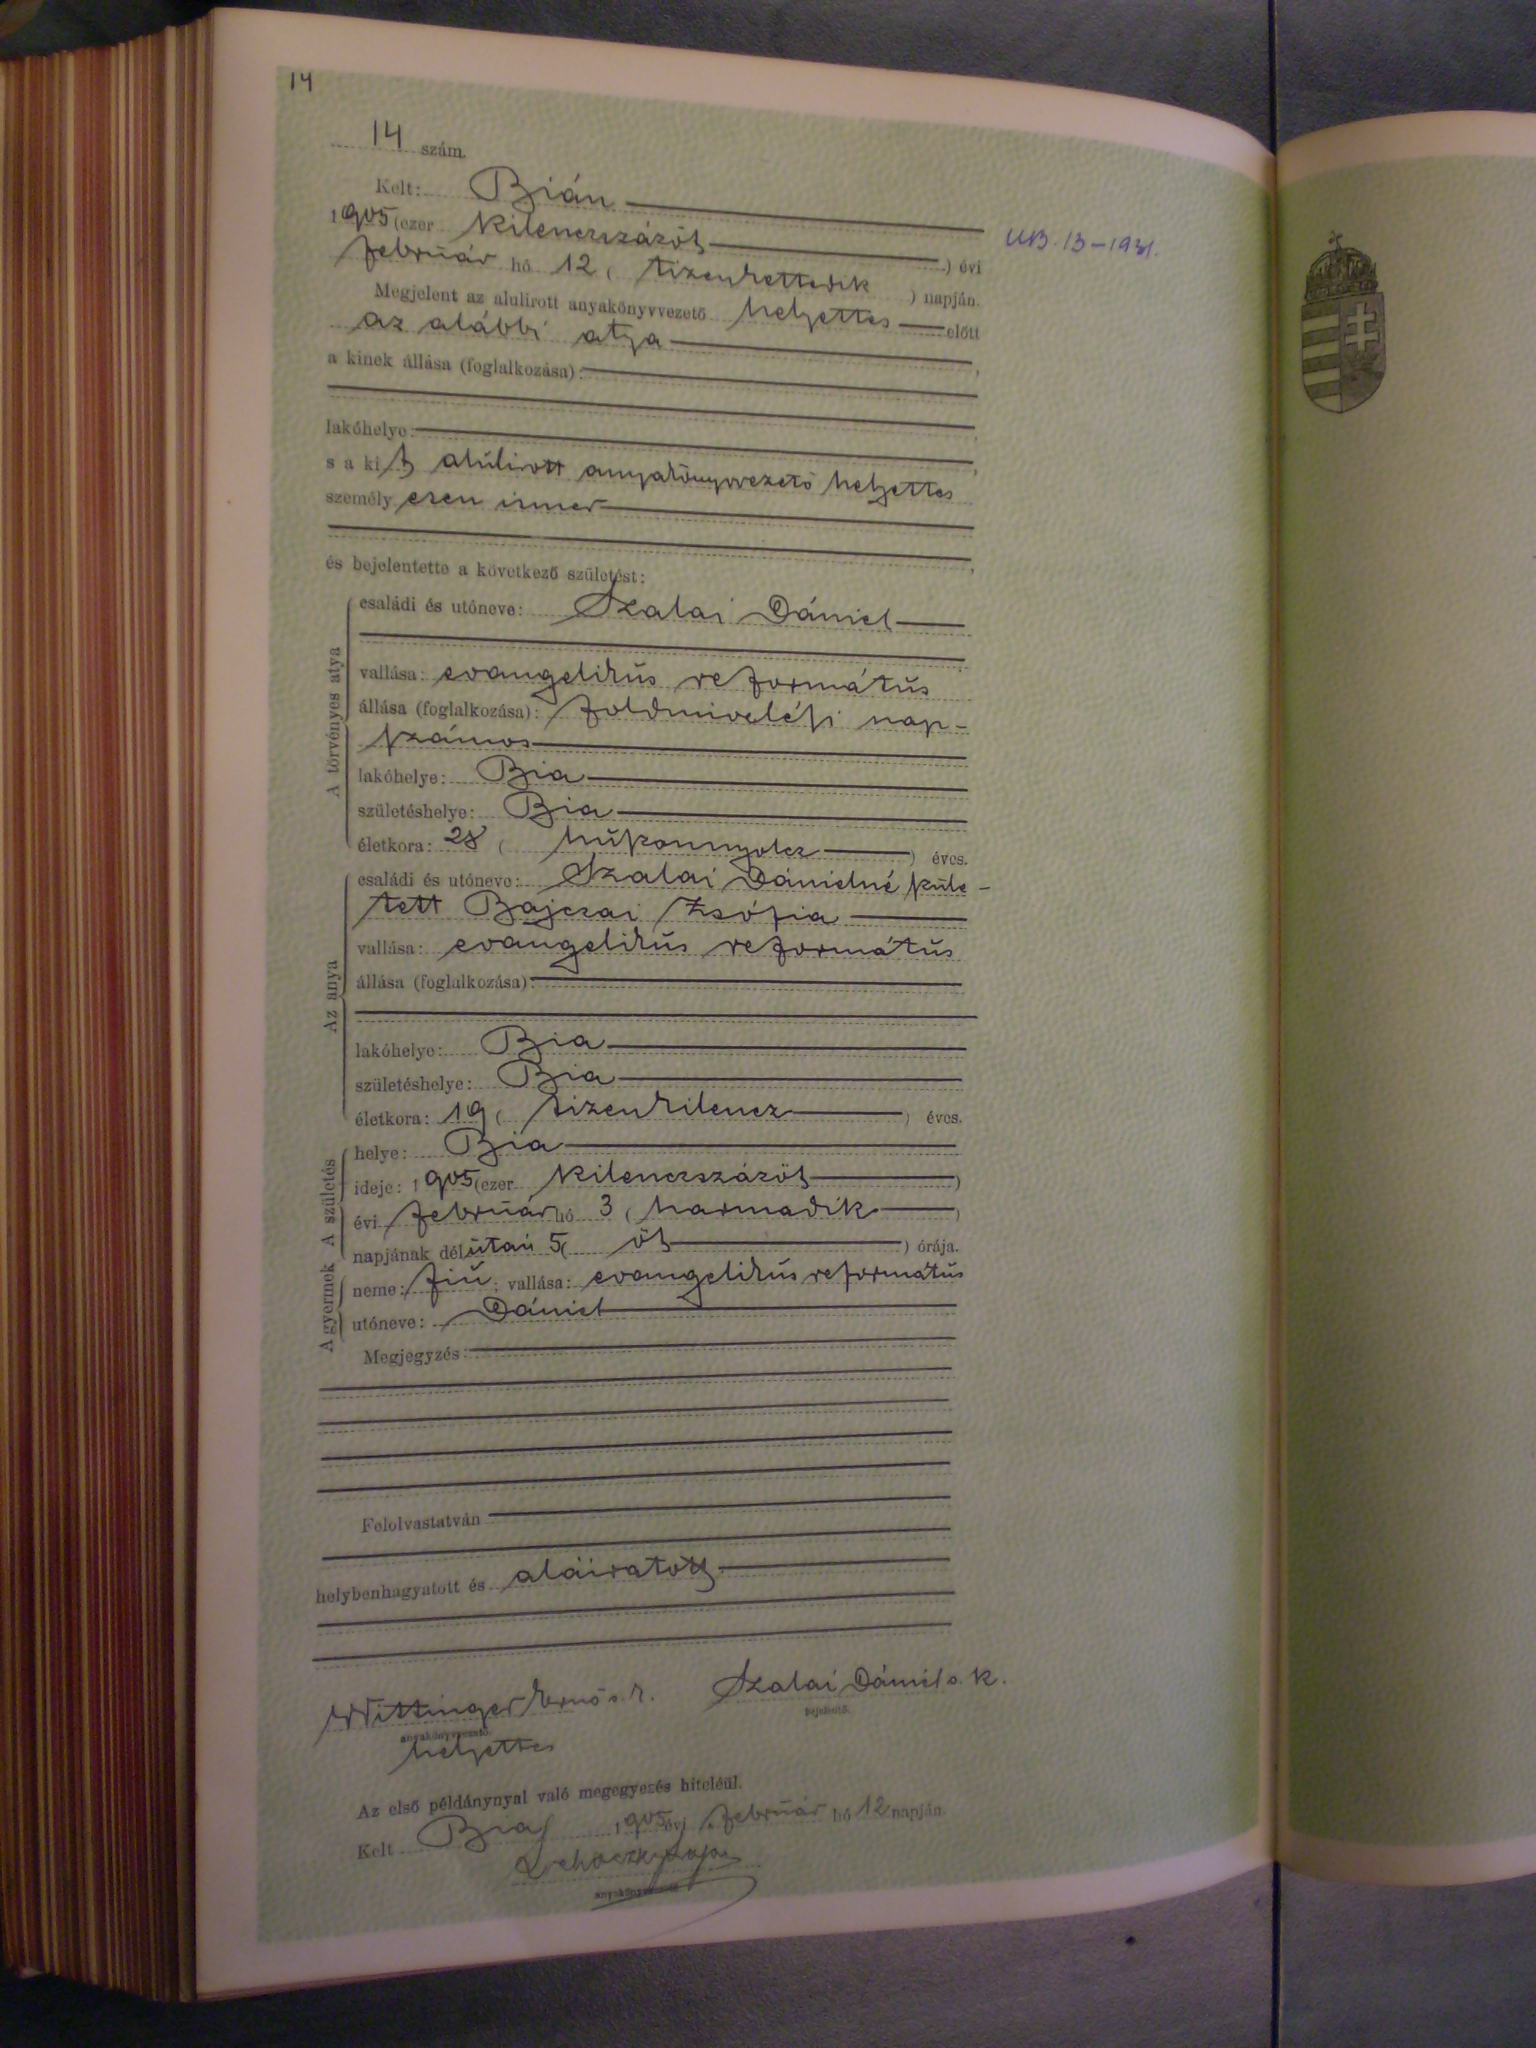 14
14 szám.
Kelt: Bián
1905 (ezer kilenczszázöt) évi
február hó 12 (tizenkettedik) napján.
Megjelent az alulirott anyakönyvvezető helyettes előtt
az alábbi atya,
a kinek állása (foglalkozása):
lakóhelye:
s a kit alúlirott anyakönyvvezető helyettes
személyesen ismer
és bejelentette a következő születést:
A törvényes atya
családi és utóneve: Szalai Dániel
vallása: evangelikús reformátús
állása (foglalkozása): földmivelési nap-
számos
lakóhelye: Bia
születéshelye: Bia
életkora: 28 (húszonnyolcz) éves.
Az anya
családi és utóneve: Szalai Dánielné szüle-
tett Bajczai Zsófia
vallása: evangelikús reformátús
állása (foglalkozása):
lakóhelye: Bia
születéshelye: Bia
életkora: 19 (tizenkilencz) éves.
A születés
helye: Bia
ideje: 1905 (ezer kilenczszázöt)
évi február hó 3 (harmadik)
napjának délútán 5 (öt) órája.
A gyermek
neme: fiú; vallása: evangelikús reformátús
utóneve: Dániel
Megjegyzés:
Felolvastatván
helybenhagyatott és aláiratott
Wittinger Ernő s. k. Szalai Dániel s. k.
anyakönyvvezető. bejelentő.
helyettes
Az első példánynyal való megegyezés hiteléül.
Kelt Bia, 1905 évi február hó 12 napján
Lehoczky Lajos
anyakönyvvezető
UB. 13-1931.